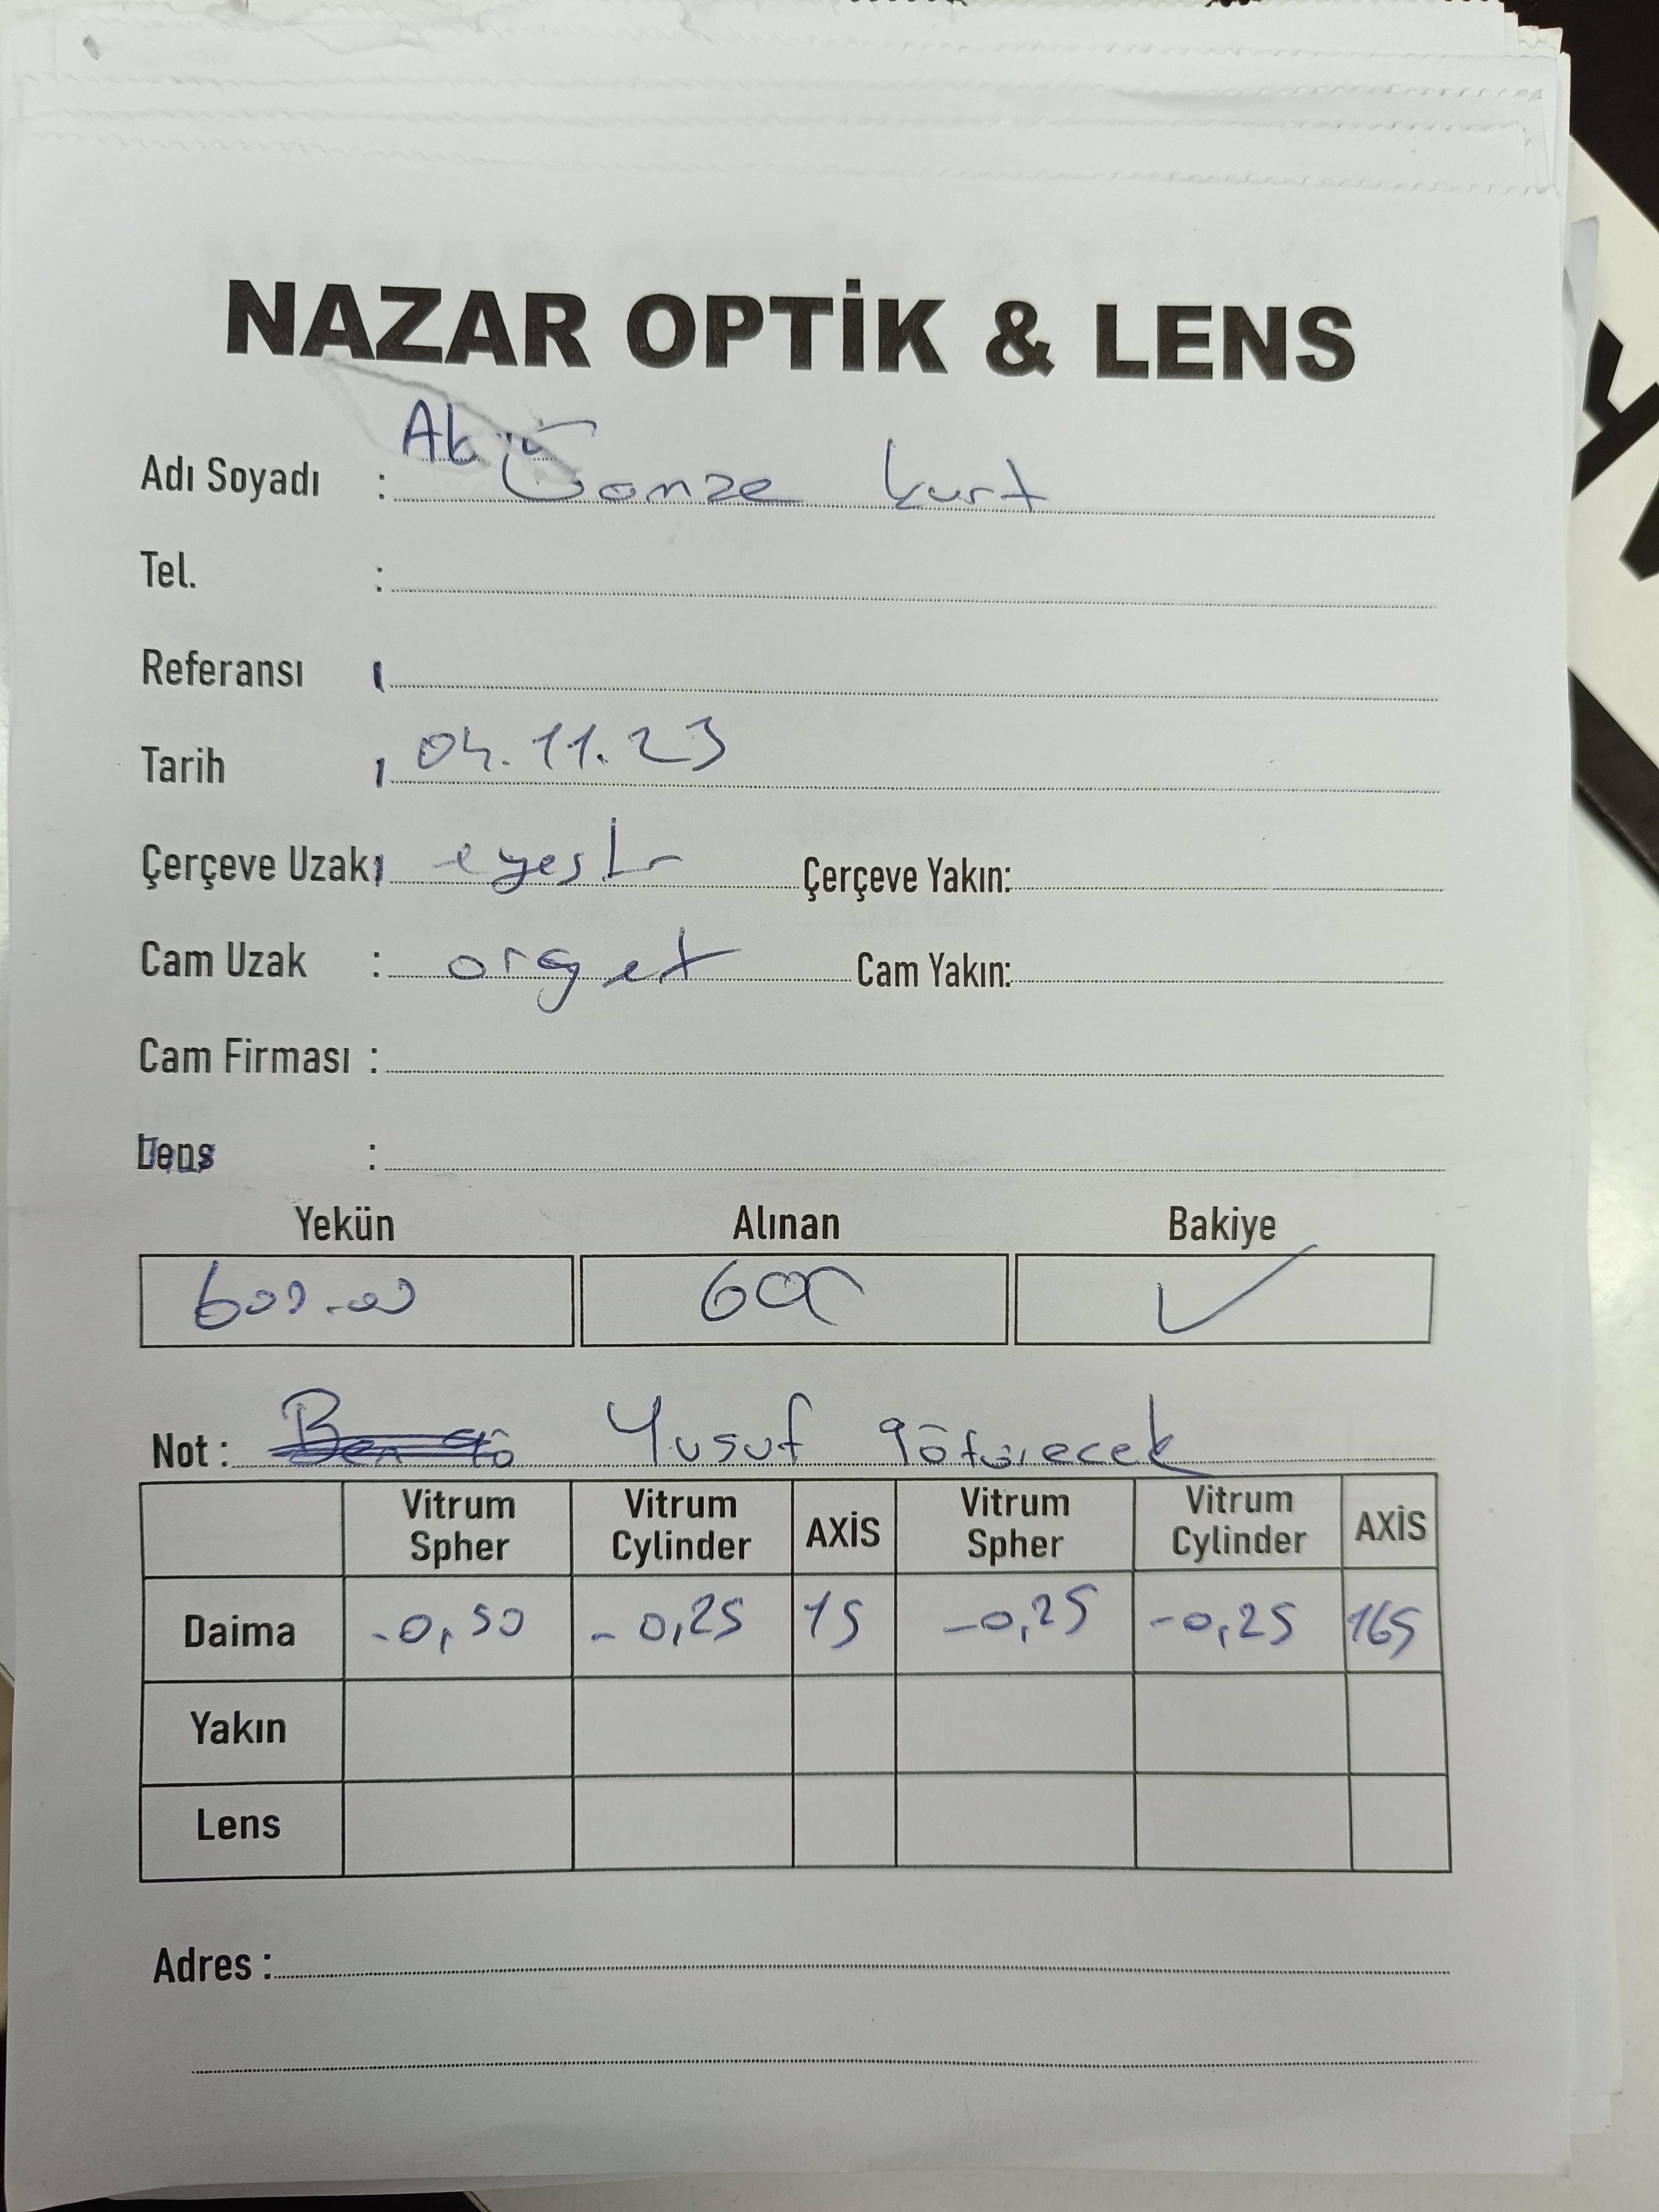 NAZAR OPTİK & LENS
Adı Soyadı : Gamze Kurt
Tel. :
Referansı
Tarih 04.11.23
Çerçeve Uzak Çerçeve Yakın:
Cam Uzak : Cam Yakın:
Cam Firması :
Lens :
Yekün Alınan Bakiye
600.00 600 ✓
Not : Yusuf götürecek
Vitrum Spher Vitrum Cylinder AXİS Vitrum Spher Vitrum Cylinder AXİS
Daima -0,50 -0,25 15 -0,25 -0,25 165
Yakın
Lens
Adres :